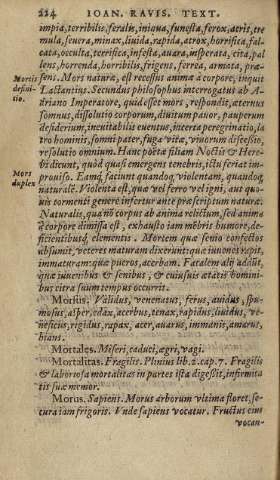 224 IOAN. RAVIS. TEXT.
impia, terribilis, feralis, iniqua, funesta, ferox, atris, tre
mula, seuera, minax, liuida, rapida, atrox, horrifica, fal
cata, occulta, terrifica, infesta, auara, insperata, cita, pal
lens, horrenda, horribilis, frigens, ferrea, armota, præ
sens. Mors natura, est recessus animæ à corpore, inquit
Mortis
defini-
tio.
Lactantius. Secundus philosophus interrogatus ab A-
driano Imperatore, quid esset mors, respondit, æternus
somnus, dissolutio corporum, diuitum pauor, pauperum
desiderium, ineuitabilis euentus, incerta peregrinatio, la
tro hominis, somni pater, fuga vitæ, viuorum discessio,
resolutio omnium. Hanc poëtæ filiam Noctis & Here-
bi dicunt, quòd quasi emergens tenebris, ictu feriat im-
prouiso. Eamq; faciunt quandoq; violentam, quandoq;
Mors
duplex
naturale. Violenta est, quæ vel ferro vel igni, aut quo-
uis tormenti genere infertur ante præscriptum naturæ.
Naturalis, qua nõ corpus ab anima relictum, sed anima
è corpore dimissa est, exhausto iam mēbris humore, de-
ficientibusq; elementis. Mortem quæ senio confectos
absumit, veteres maturam dixerunt: quæ iuuenes rapit,
immaturam: quæ pueros, acerbam. Fatalem alij addūt,
quæ iuuenibus & senibus, & cuiusuis ætatis homini-
bus citra suum tempus occurrit.
Morsus. Validus, venenatus, ferus, auidus, spu-
mosus, asper, edax, acerbus, tenax, rapidus, liuidus, ve-
neficius, rigidus, rapax, acer, auarus, immanis, amarus,
hians.
Mortales. Miseri, caduci, ægri, vagi.
Mortalitas. Fragilis. Plinius lib. 2. cap. 7. Fragilis
& laboriosa mortalitas in partes ista digessit, infirmita
tis suæ memor.
Morus. Sapiens. Morus arborum vltima floret, se-
cura iam frigoris. Vnde sapiens vocatur. Fructus eius
vocan-